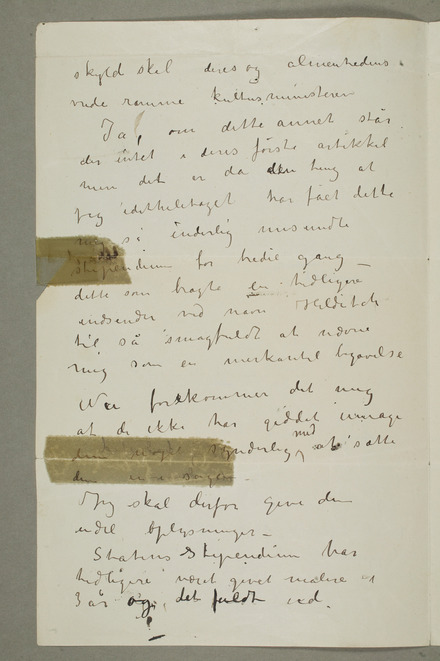 skyld skal deres og almenhedens
vrede ramme kultusministeren
Ja, om dette annet står
der intet i deres første artikkel
men det er da den ting at
jeg idethele taget har fået dette
så inderlig misundte
stipendium for tredie gang –
dette som bragte en tidligere
indsender ved navn Hilditch
til så smagfuldt at nævne
mig som en merkantil begavelse
Nu forekommer det mig
at de ikke har giddet umage
dem synderlig med at sætte
dem ind i sagen
Jeg skal derfor give dem
endel oplysninger –
Statens Stipendium har
tidligere været givet malere i
3 år og det fuldt ud.